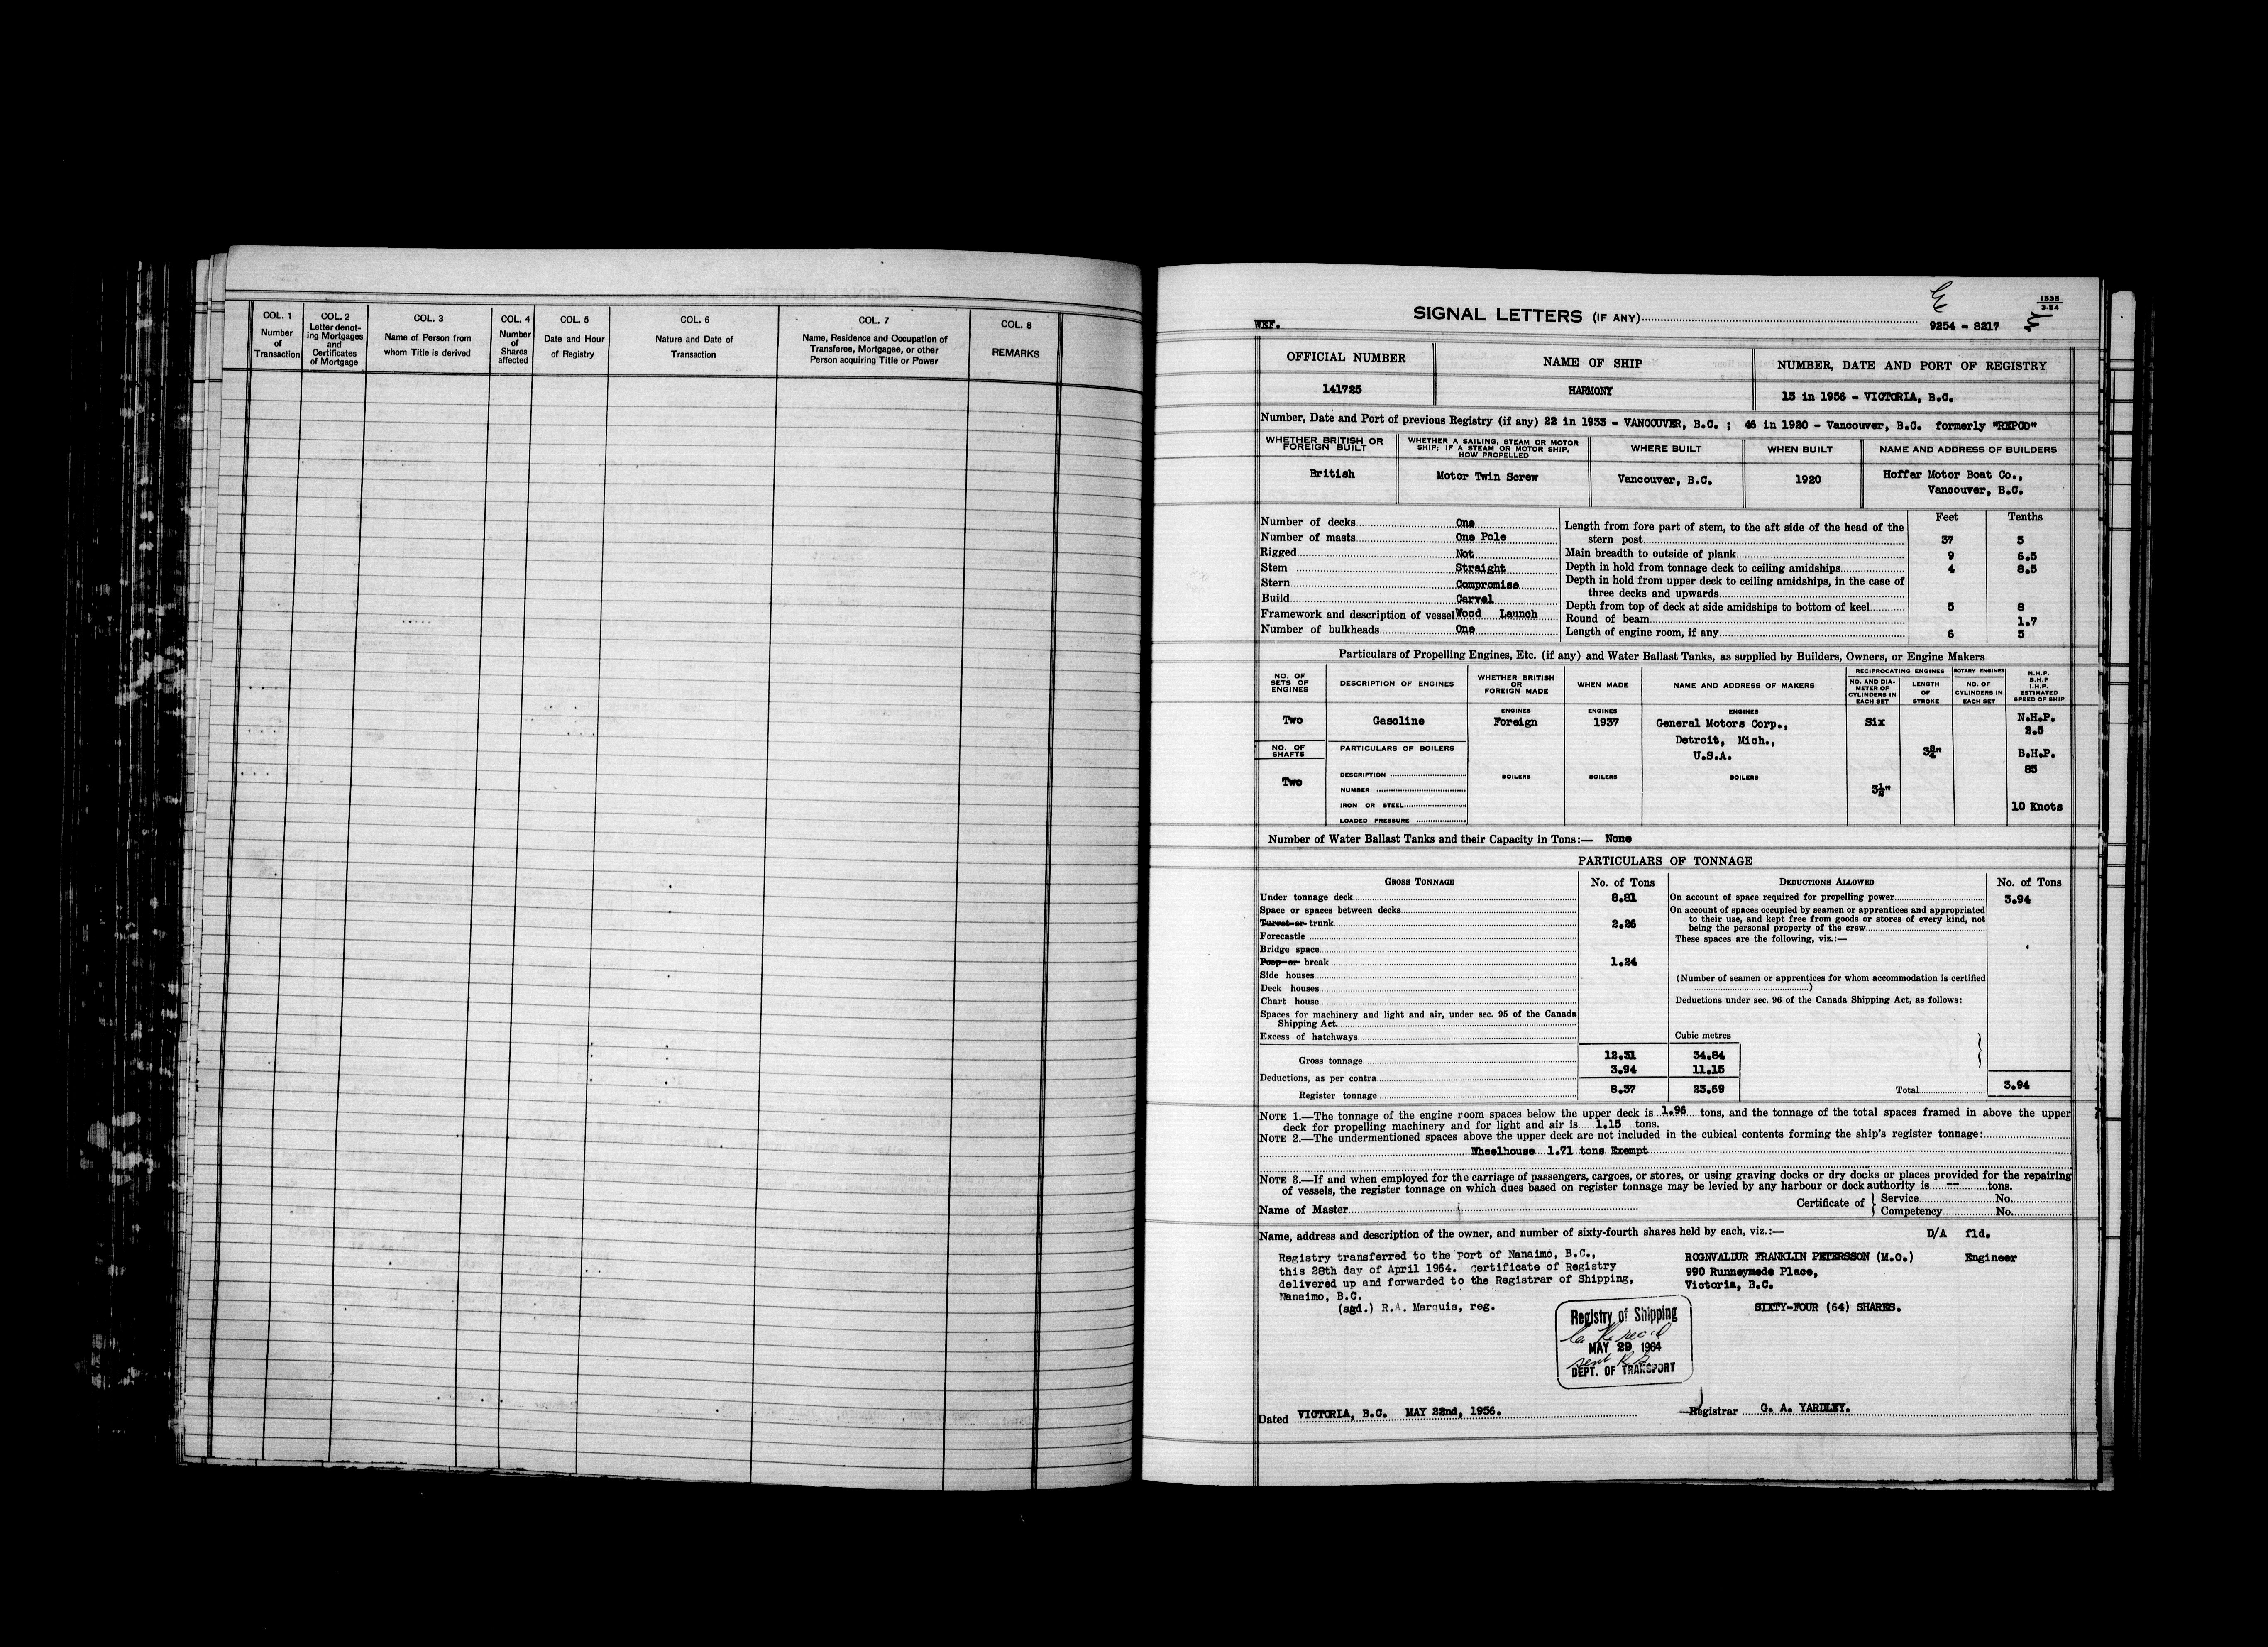 COL. 1 COL. 2 COL. 3 COL. 4 COL. 5 COL. 6 COL. 7 COL. 8
Number of Transaction
Letter denoting Mortgages and Certificates of Mortgage
Name of Person from whom Title is derived
Number of Shares affected
Date and Hour of Registry
Nature and Date of Transaction
Name, Residence and Occupation of Transferee, Mortgagee, or other Person acquiring Title or Power
REMARKS
1535
3-54
WEF.
SIGNAL LETTERS (IF ANY)
9254 - 8217
OFFICIAL NUMBER NAME OF SHIP NUMBER, DATE AND PORT OF REGISTRY
141725 HARMONY 13 in 1956 - VICTORIA, B.C.
Number, Date and Port of previous Registry (if any) 22 in 1933 - VANCOUVER, B.C. ; 46 in 1920 - Vancouver, B.C. formerly "REPCO"
WHETHER BRITISH OR FOREIGN BUILT
WHETHER A SAILING, STEAM OR MOTOR SHIP; IF A STEAM OR MOTOR SHIP, HOW PROPELLED
WHERE BUILT WHEN BUILT NAME AND ADDRESS OF BUILDERS
British Motor Twin Screw Vancouver, B.C. 1920 Hoffar Motor Boat Co.,
Vancouver, B.C.
Feet Tenths
Number of decks One
Number of masts One Pole
Rigged Not
Stem Straight
Stern Compromise
Build Carvel
Framework and description of vessel Wood Launch
Number of bulkheads One
Length from fore part of stem, to the aft side of the head of the
stern post 37 5
Main breadth to outside of plank 9 6.5
Depth in hold from tonnage deck to ceiling amidships 4 8.5
Depth in hold from upper deck to ceiling amidships, in the case of
three decks and upwards
Depth from top of deck at side amidships to bottom of keel 5 8
Round of beam 1.7
Length of engine room, if any 6 5
Particulars of Propelling Engines, Etc. (if any) and Water Ballast Tanks, as supplied by Builders, Owners, or Engine Makers
NO. OF SETS OF ENGINES
DESCRIPTION OF ENGINES
WHETHER BRITISH OR FOREIGN MADE
WHEN MADE
NAME AND ADDRESS OF MAKERS
RECIPROCATING ENGINES
NO. AND DIAMETER OF CYLINDERS IN EACH SET
LENGTH OF STROKE
ROTARY ENGINES
NO. OF CYLINDERS IN EACH SET
N.H.P.
B.H.P
I.H.P.
ESTIMATED SPEED OF SHIP
ENGINES ENGINES ENGINES
Two Gasoline Foreign 1937 General Motors Corp., Six N.H.P.
2.5
Detroit, Mich.,
U.S.A. 3¾" B.H.P.
85
NO. OF SHAFTS
PARTICULARS OF BOILERS
Two
DESCRIPTION
BOILERS BOILERS BOILERS
NUMBER 3½"
IRON OR STEEL 10 Knots
LOADED PRESSURE
Number of Water Ballast Tanks and their Capacity in Tons:— None
PARTICULARS OF TONNAGE
GROSS TONNAGE No. of Tons DEDUCTIONS ALLOWED No. of Tons
Under tonnage deck 8.81
Space or spaces between decks
Turret or trunk 2.26
Forecastle
Bridge space
Poop or break 1.24
Side houses
Deck houses
Chart house
Spaces for machinery and light and air, under sec. 95 of the Canada
Shipping Act
Excess of hatchways
On account of space required for propelling power 3.94
On account of spaces occupied by seamen or apprentices and appropriated
to their use, and kept free from goods or stores of every kind, not
being the personal property of the crew
These spaces are the following, viz.:—
(Number of seamen or apprentices for whom accommodation is certified
)
Deductions under sec. 96 of the Canada Shipping Act, as follows:
Cubic metres
Gross tonnage 12.31 34.84
Deductions, as per contra 3.94 11.15
Register tonnage 8.37 23.69 Total 3.94
NOTE 1.—The tonnage of the engine room spaces below the upper deck is 1.96 tons, and the tonnage of the total spaces framed in above the upper
deck for propelling machinery and for light and air is 1.15 tons.
NOTE 2.—The undermentioned spaces above the upper deck are not included in the cubical contents forming the ship's register tonnage:
Wheelhouse 1.71 tons Exempt
NOTE 3.—If and when employed for the carriage of passengers, cargoes, or stores, or using graving docks or dry docks or places provided for the repairing
of vessels, the register tonnage on which dues based on register tonnage may be levied by any harbour or dock authority is -- tons.
Name of Master Certificate of { Service No.
Competency No.
Name, address and description of the owner, and number of sixty-fourth shares held by each, viz.:— D/A fld.
Registry transferred to the Port of Nanaimo, B.C.,
this 28th day of April 1964. Certificate of Registry
delivered up and forwarded to the Registrar of Shipping,
Nanaimo, B.C.
(sgd.) R.A. Marquis, reg.
ROGNVALDUR FRANKLIN PETERSSON (M.O.) Engineer
990 Runneymede Place,
Victoria, B.C.
SIXTY-FOUR (64) SHARES.
Registry of Shipping
MAY 29 1964
DEPT. OF TRANSPORT
Dated VICTORIA, B.C. MAY 22nd, 1956. Registrar G. A. YARDLEY.